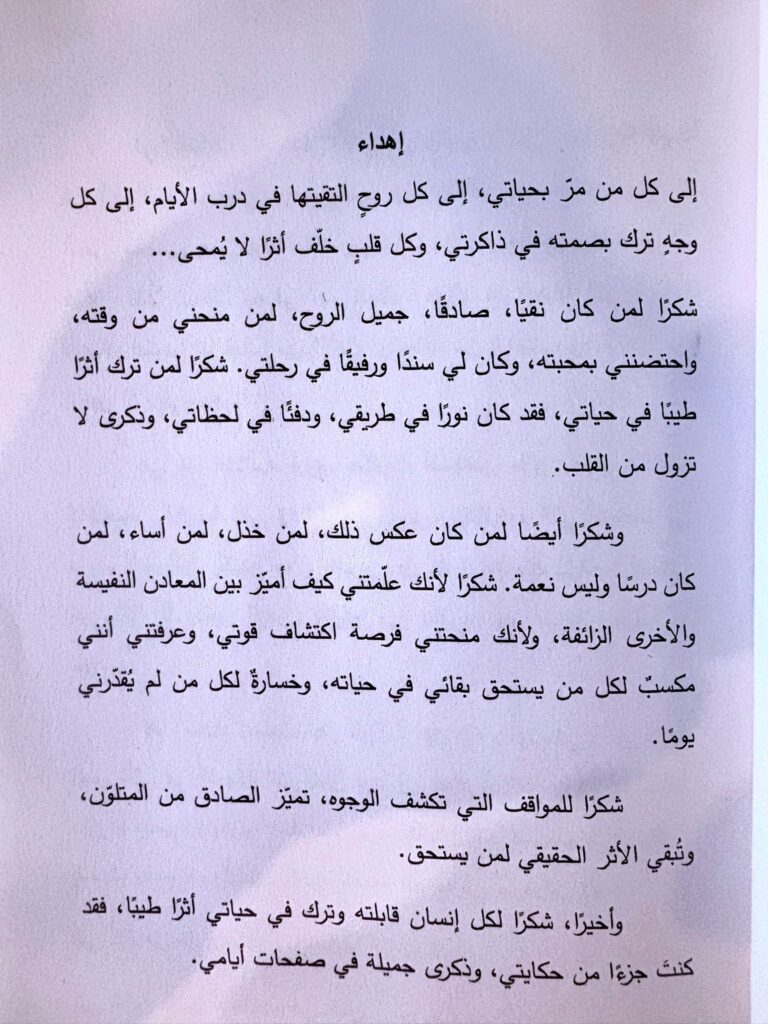 إهداء
إلى كل من مرّ بحياتي، إلى كل روحٍ التقيتها في درب الأيام، إلى كل
وجهٍ ترك بصمته في ذاكرتي، وكل قلبٍ خلّف أثرًا لا يُمحى...
شكرًا لمن كان نقيًا، صادقًا، جميل الروح، لمن منحني من وقته،
واحتضنني بمحبته، وكان لي سندًا ورفيقًا في رحلتي. شكرًا لمن ترك أثرًا
طيبًا في حياتي، فقد كان نورًا في طريقي، ودفئًا في لحظاتي، وذكرى لا
تزول من القلب.
وشكرًا أيضًا لمن كان عكس ذلك، لمن خذل، لمن أساء، لمن
كان درسًا وليس نعمة. شكرًا لأنك علّمتني كيف أميّز بين المعادن النفيسة
والأخرى الزائفة، ولأنك منحتني فرصة اكتشاف قوتي، وعرفتني أنني
مكسبٌ لكل من يستحق بقائي في حياته، وخسارةٌ لكل من لم يُقدّرني
يومًا.
شكرًا للمواقف التي تكشف الوجوه، تميّز الصادق من المتلوّن،
وتُبقي الأثر الحقيقي لمن يستحق.
وأخيرًا، شكرًا لكل إنسان قابلته وترك في حياتي أثرًا طيبًا، فقد
كنتَ جزءًا من حكايتي، وذكرى جميلة في صفحات أيامي.